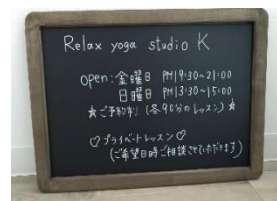 Relax yoga studio K
open:金曜日 PM19:30~21:00
日曜日 PM13:30~15:00
★ご予約制 (各90分のレッスン)★
♡プライベートレッスン♡
(ご希望日時ご相談させていただきます)